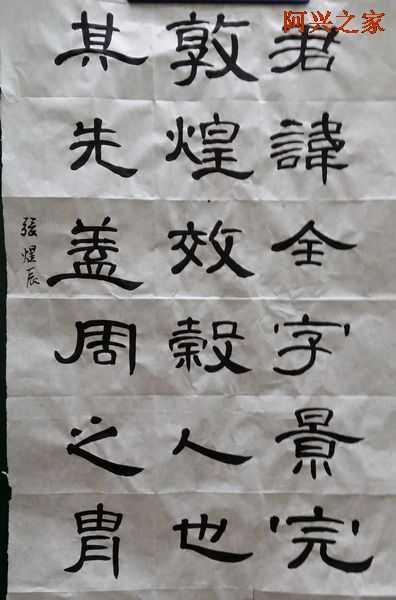 阿兴之家
君諱全字景完
敦煌效穀人也
其先蓋周之胄
張煜辰